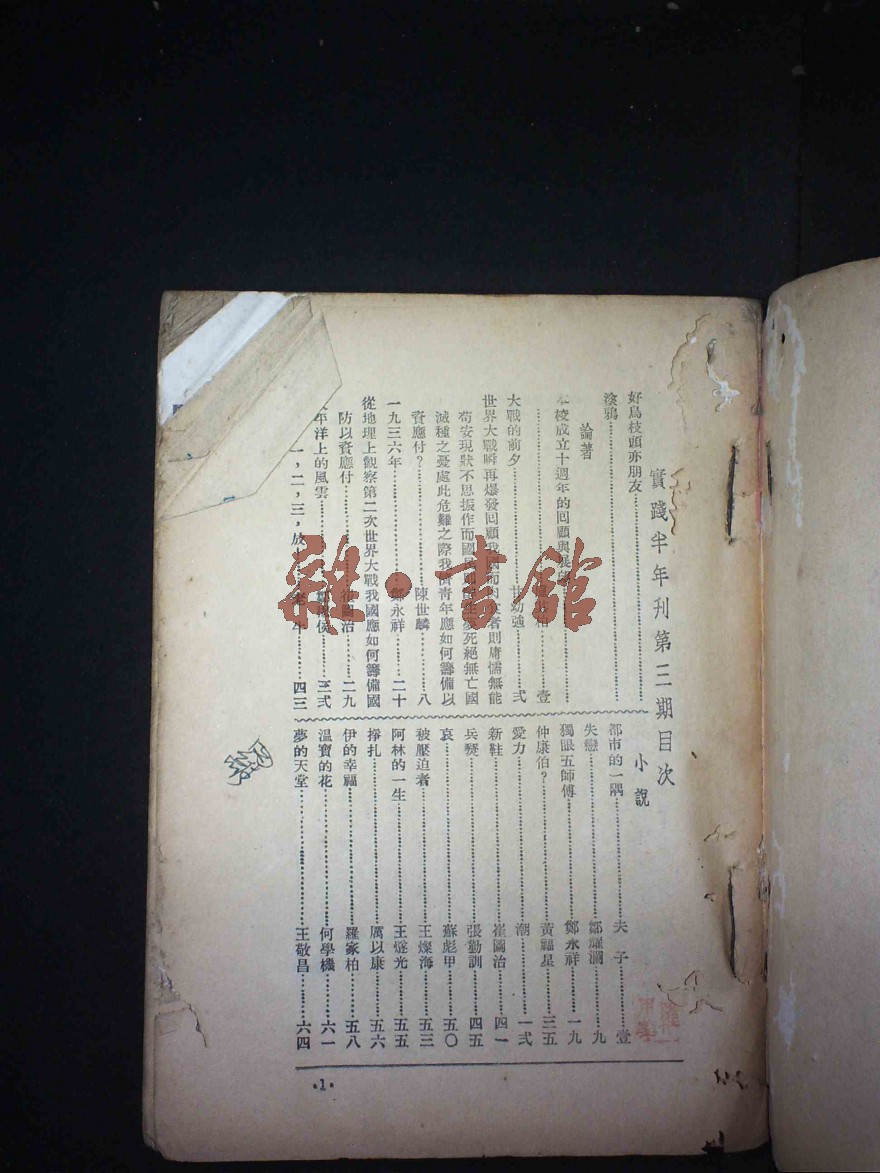 實踐半年刊第三期目次
好鳥枝頭亦朋友
塗鴉
論著
本校成立十週年的回顧與展望
壹
大戰的前夕 甘幼強 弍
世界大戰瞬再爆發回顧我國 者則庸懦無能
苟安現狀不思振作而國民 死絕無亡國
滅種之憂處此危難之際我儕青年應如何籌備以
資應付? 陳世麟 八
一九三六年 鄭永祥 二十
從地理上觀察第二次世界大戰我國應如何籌備國
防以資應付 崔國治 二九
平洋上的風雲 三弍
一,二,三,放 牛 四三
小說
都市的一隅 夫子 壹
失戀 鄒耀瀾 九
獨眼五師傅 鄭永祥 一九
仲康伯? 黃福星 三五
愛力 潮 一弍
新鞋 崔國治 四一
兵燹 張勤訓 四五
哀 蘇彪甲 五〇
被壓迫者 王燦海 五三
阿林的一生 王燧光 五五
掙扎 厲以康 五六
伊的幸福 羅家柏 五八
溫寶的花 何學機 六一
夢的天堂 王敬昌 六四
·1·
雜·書館